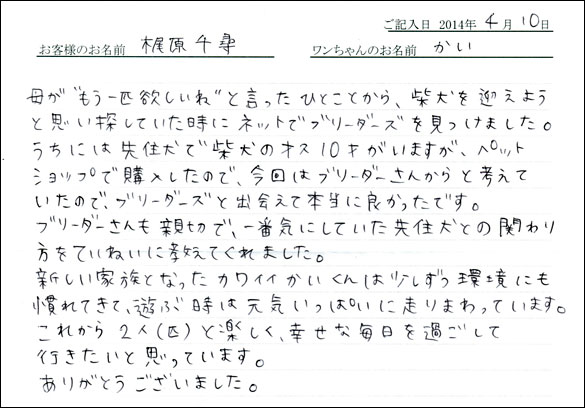 ご記入日 2014年 4月10日
お客様のお名前 梶原千尋 ワンちゃんのお名前 かい
母が“もう一匹欲しいね”と言ったひとことから、柴犬を迎えよう
と思い探していた時にネットでブリーダーズを見つけました。
うちには先住犬で柴犬のオス10才がいますが、ペット
ショップで購入したので、今回はブリーダーさんからと考えて
いたので、ブリーダーズと出会えて本当に良かったです。
ブリーダーさんも親切で、一番気にしていた先住犬との関わり
方をていねいに教えてくれました。
新しい家族となったカワイイかいくんは少しずつ環境にも
慣れてきて、遊ぶ時は元気いっぱいに走りまわっています。
これから2人(匹)と楽しく、幸せな毎日を過ごして
行きたいと思っています。
ありがとうございました。